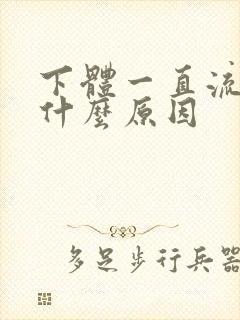 下體一直流
什麼原因
多足步行兵器